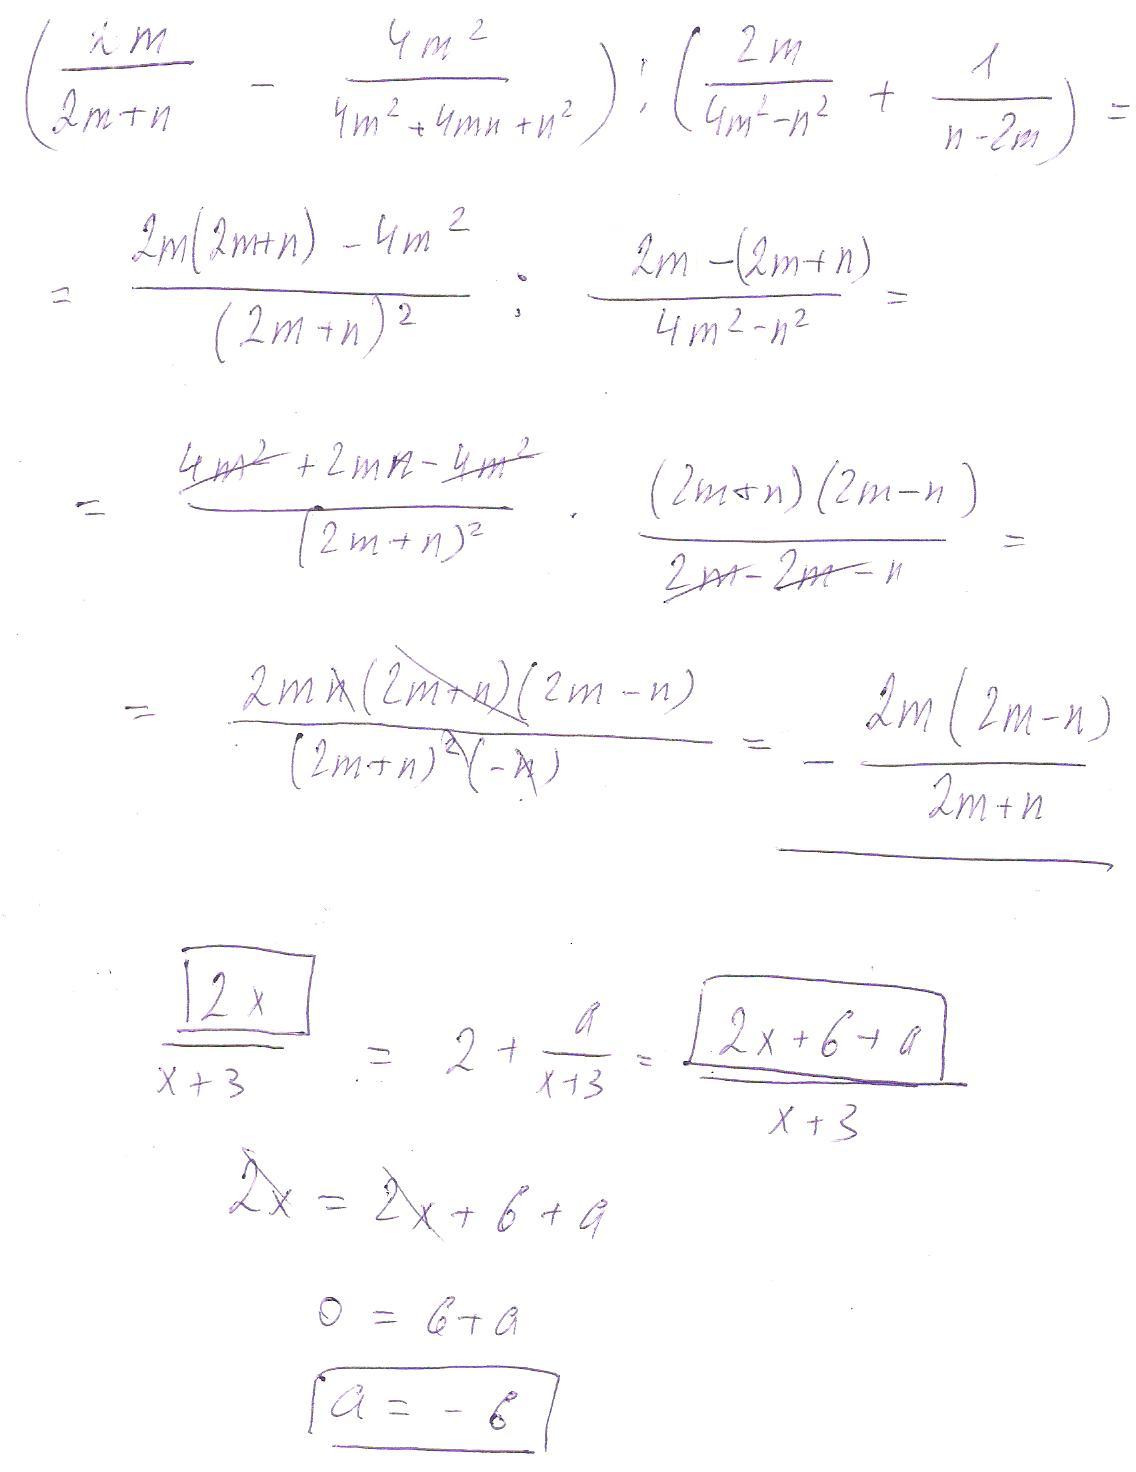 (2m/(2m+n) - 4m²/(4m²+4mn+n²)) : (2m/(4m²-n²) + 1/(n-2m)) =
= (2m(2m+n) - 4m²)/(2m+n)² : (2m-(2m+n))/(4m²-n²) =
= (4m² + 2mn - 4m²)/(2m+n)² · ((2m+n)(2m-n))/(2m-2m-n) =
= (2mn(2m+n)(2m-n))/((2m+n)²(-n)) = - (2m(2m-n))/(2m+n)
2x/(x+3) = 2 + a/(x+3) = (2x+6+a)/(x+3)
2x = 2x+6+a
0 = 6+a
a = -6